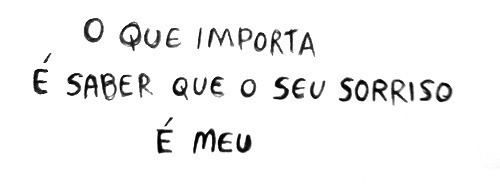 O QUE IMPORTA
É SABER QUE O SEU SORRISO
É MEU